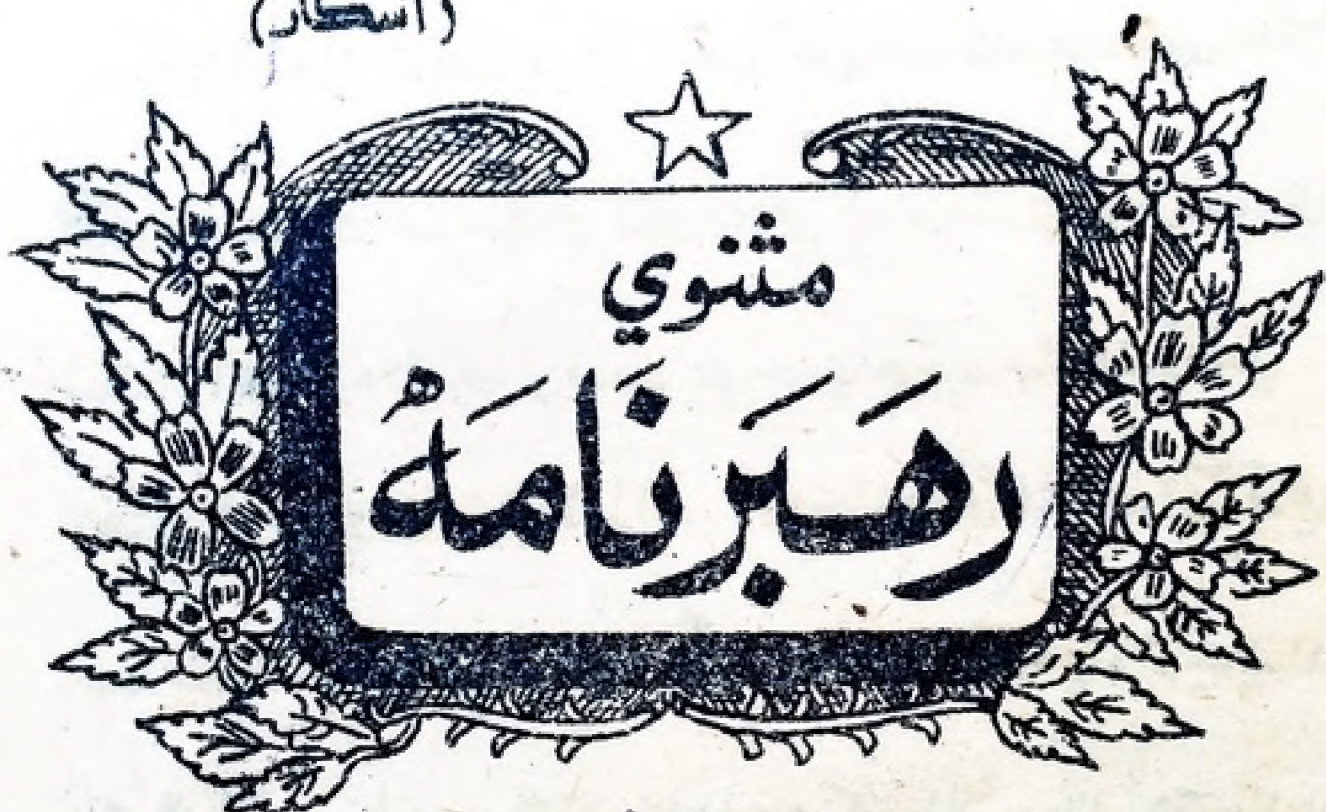 مثنوي
رَهَبَرنَامَهُ